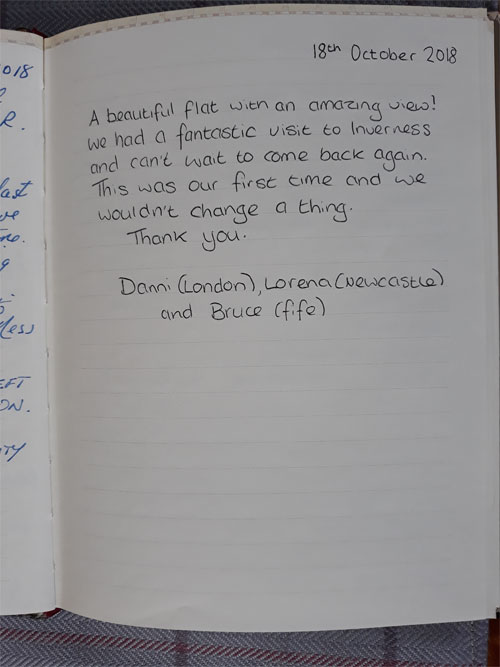 018
R.
last
we
g
less
EFT
ON.
ITY
18th October 2018
A beautiful flat with an amazing view!
we had a fantastic visit to Inverness
and can't wait to come back again.
This was our first time and we
wouldn't change a thing.
Thank you.
Danni (London), Lorena (Newcastle)
and Bruce (fife)